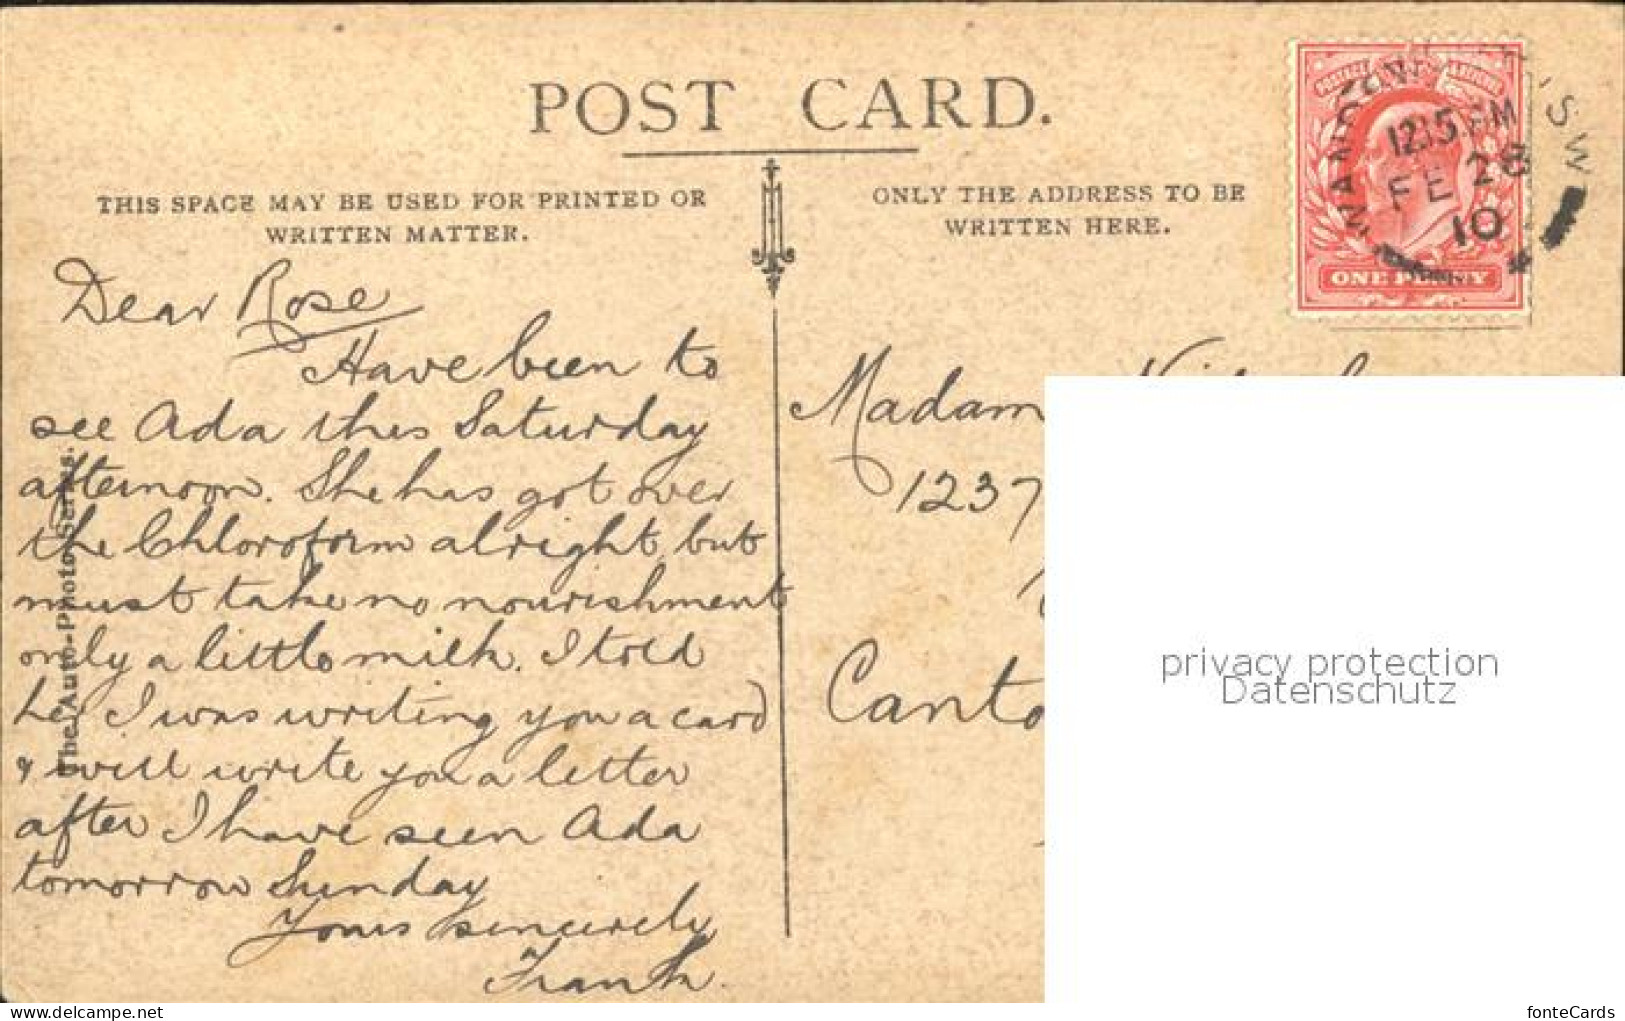 POST CARD.
THIS SPACE MAY BE USED FOR PRINTED OR
WRITTEN MATTER.
ONLY THE ADDRESS TO BE
WRITTEN HERE.
12.15 PM
FE 28
10
S.W
ONE PENNY
Dear Rose
Have been to
see Ada this Saturday
afternoon. She has got over
the Chloroform alright, but
must take no nourishment
only a little milk. I told
her I was writing you a card
& will write you a letter
after I have seen Ada
tomorrow Sunday
Yours sincerely
Frank.
The Auto-Photo Series.
Madam
1237
Canto
privacy protection
Datenschutz
www.delcampe.net
fonteCards